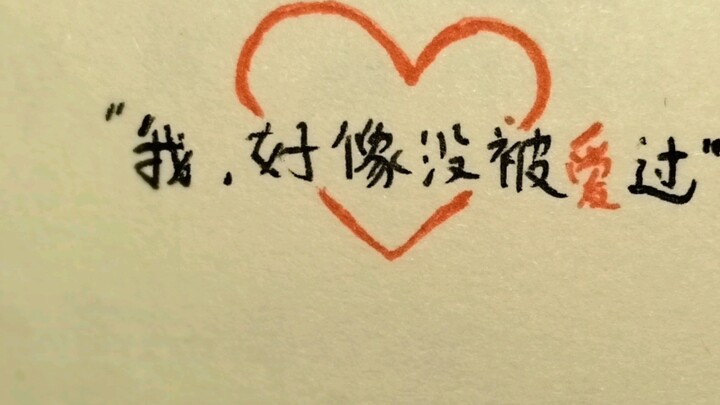 “我，好像没被爱过”